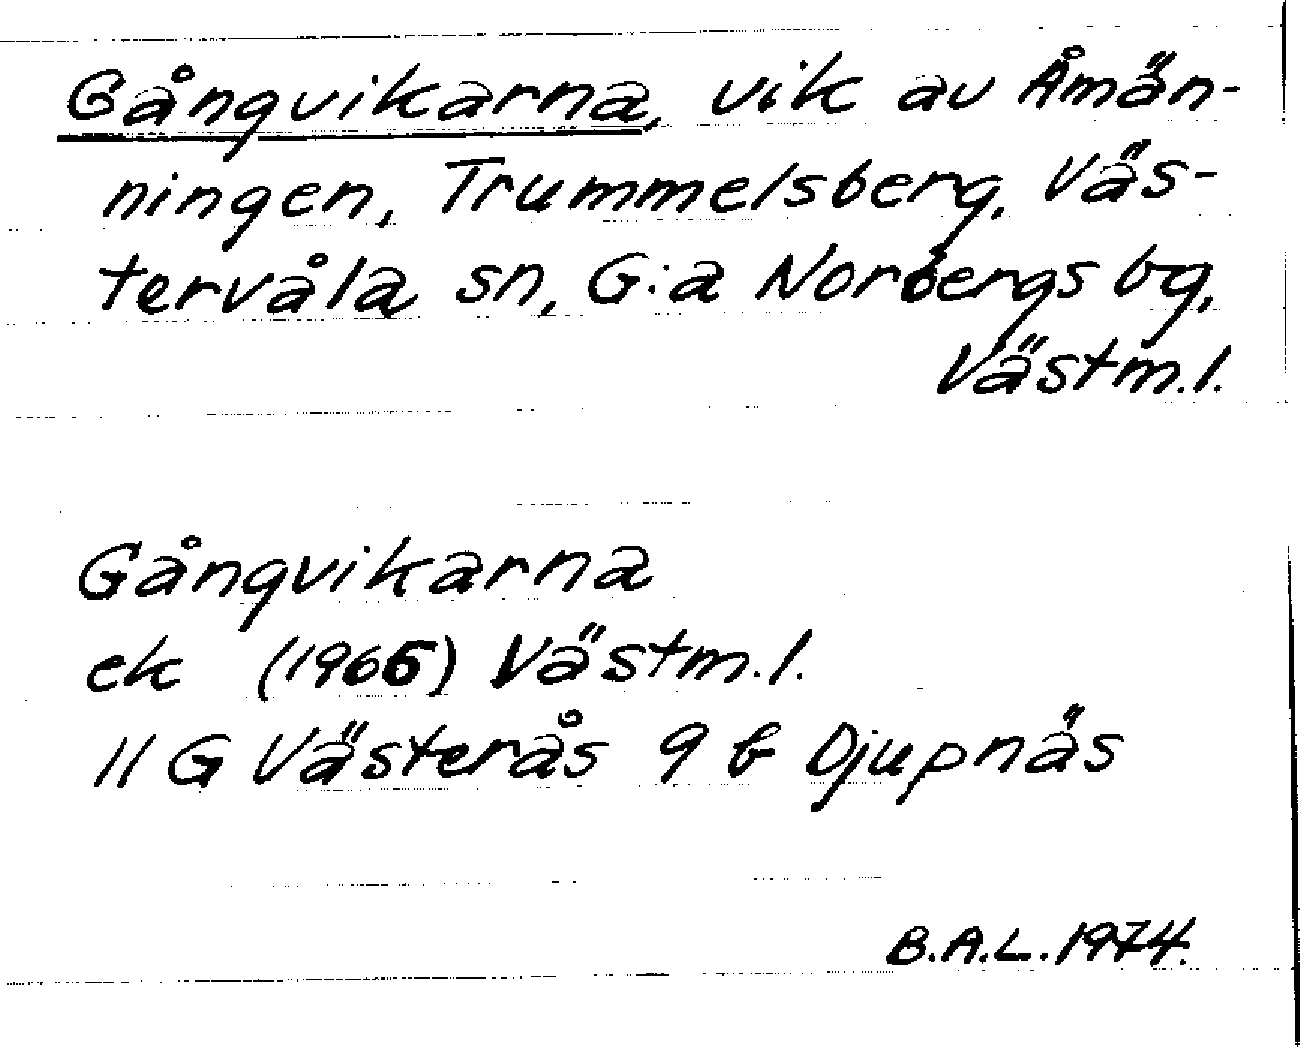 Gångvikarna, vik av Åmän-
ningen, Trummelsberg, Väs-
tervåla sn, G:a Norbergs bg,
Västm.l.
Gångvikarna
ek (1966) Västm.l.
11 G Västerås 9 b Djupnäs
B.A.L. 1974.